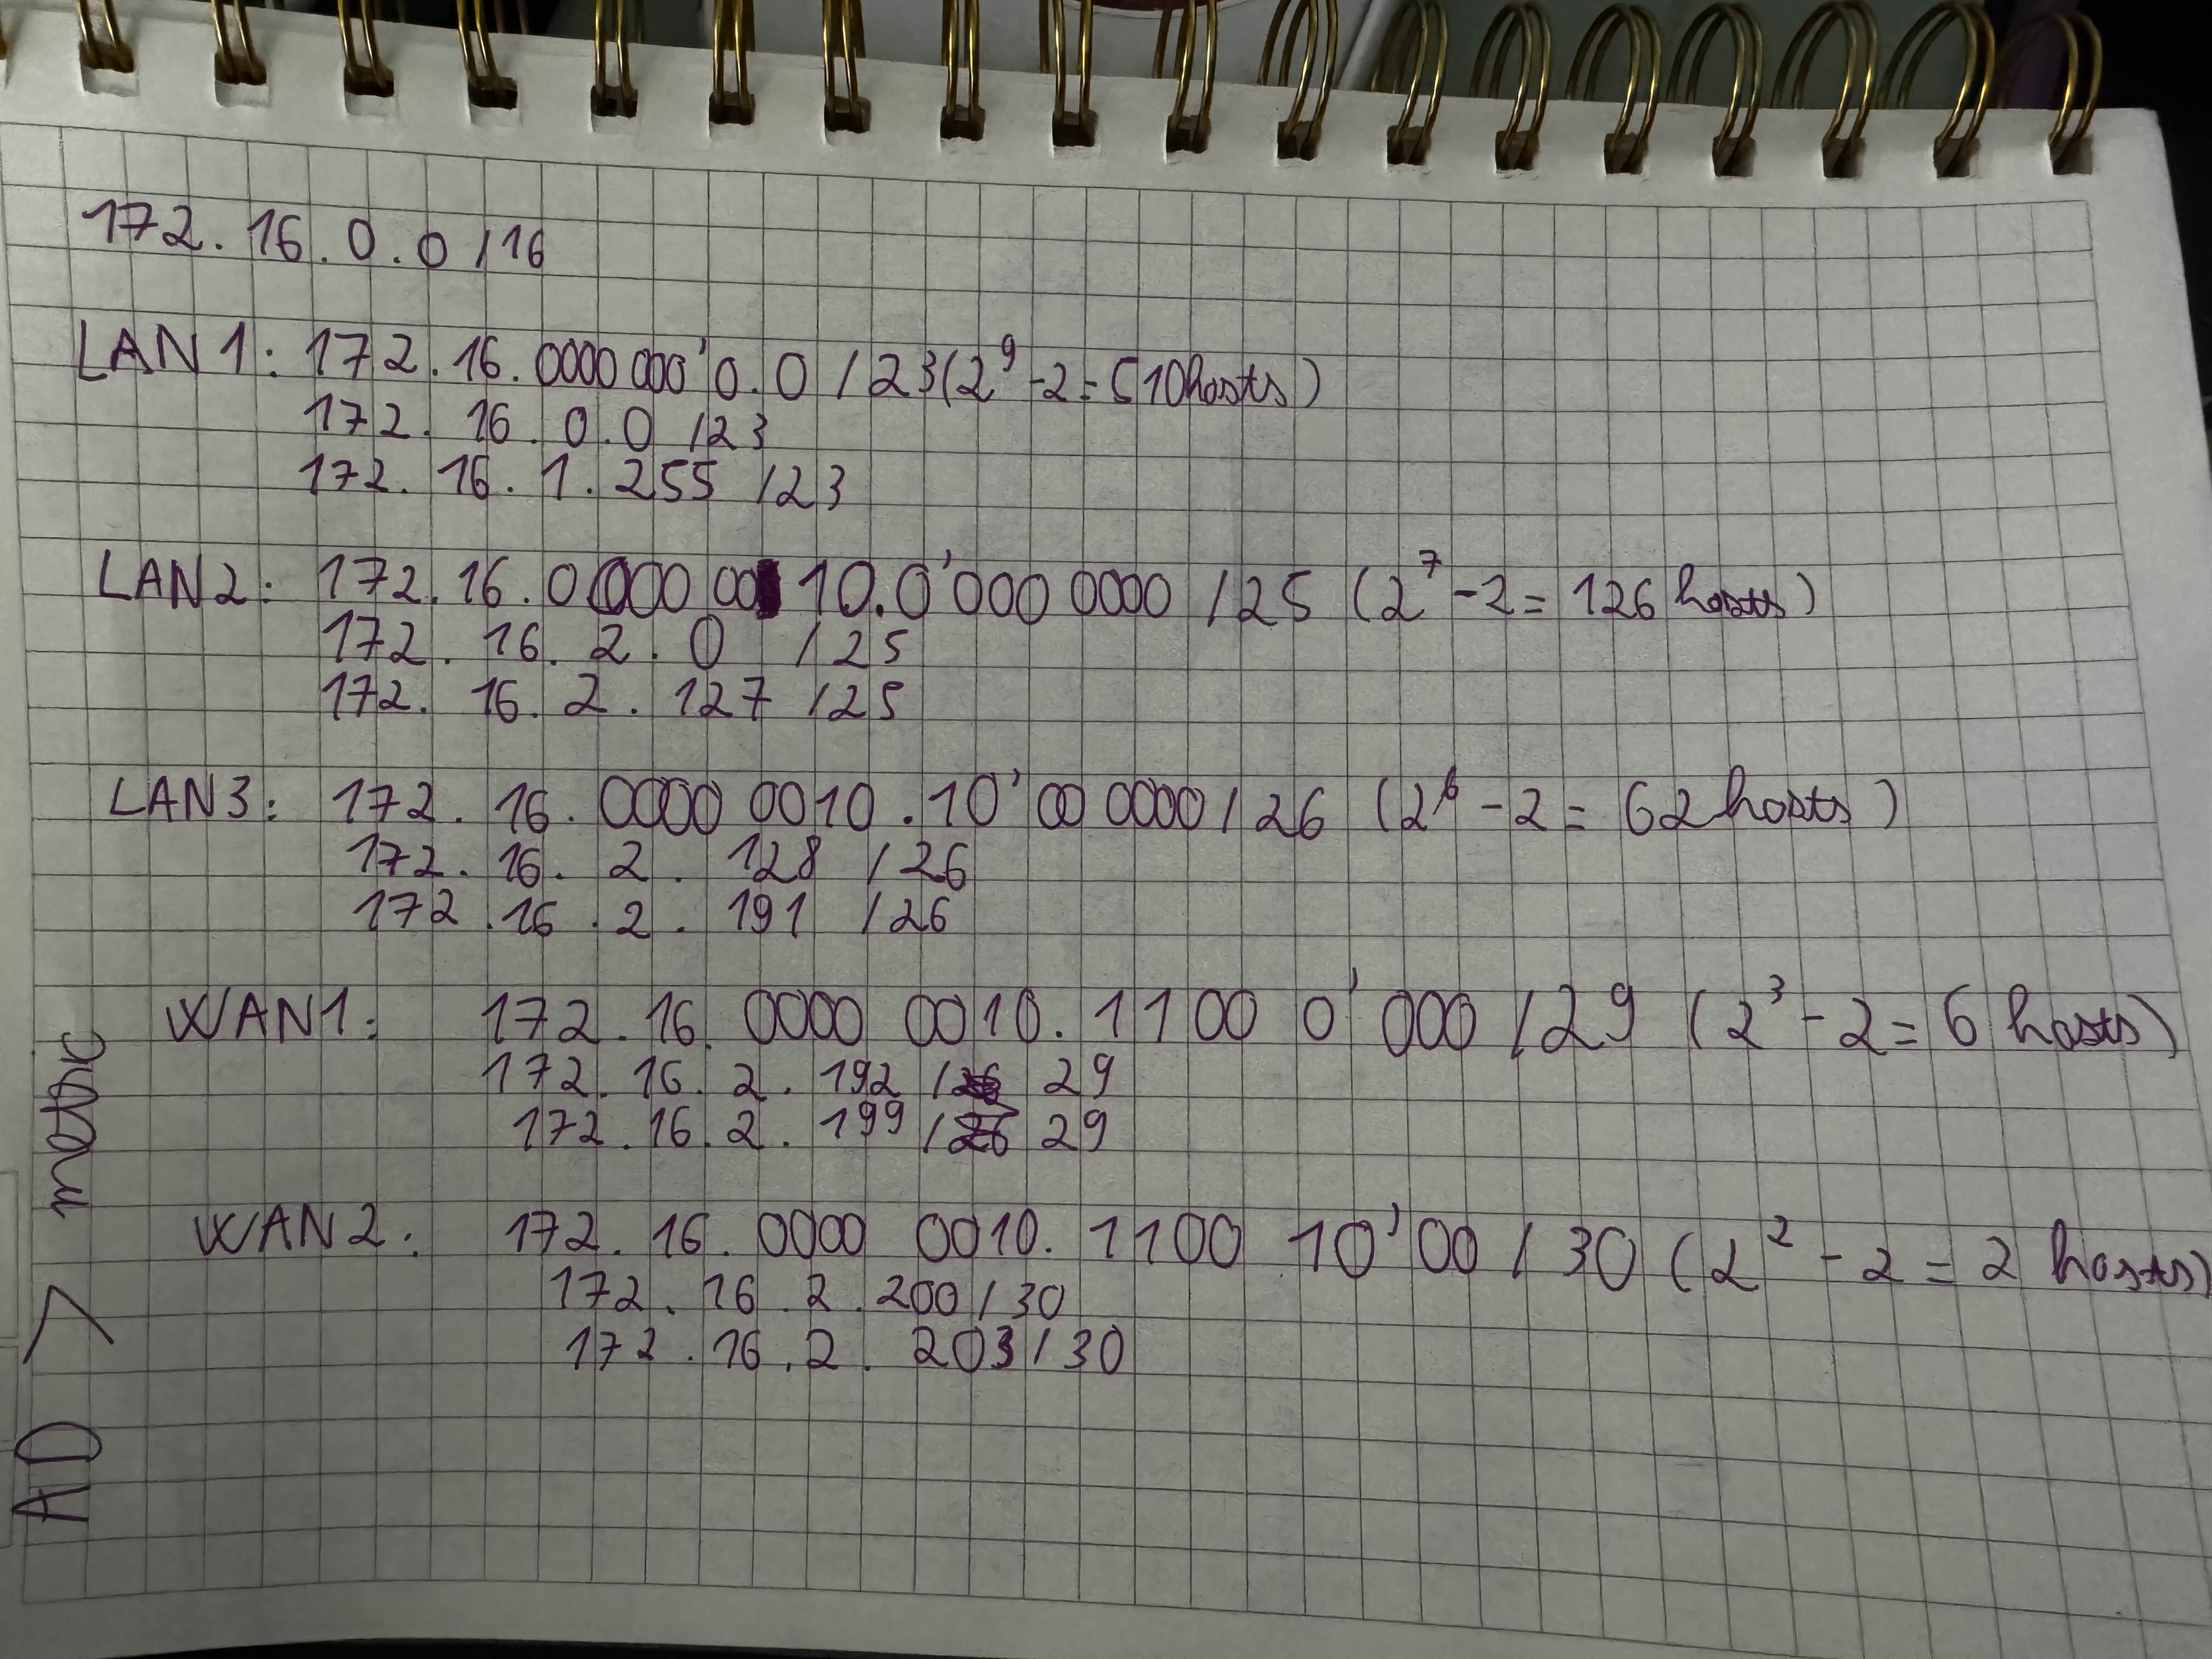 172.16.0.0 /16
LAN1: 172.16.0000 000'0.0 /23 (2⁹-2=510hosts)
172.16.0.0 /23
172.16.1.255 /23
LAN2: 172.16.0000 00 10.0'000 0000 /25 (2⁷-2=126 hosts)
172.16.2.0 /25
172.16.2.127 /25
LAN3: 172.16.0000 0010.10'00 0000 /26 (2⁶-2=62 hosts)
172.16.2.128 /26
172.16.2.191 /26
WAN1: 172.16.0000 0010.1100 0'000 /29 (2³-2=6 hosts)
172.16.2.192 /26 29
172.16.2.199 /26 29
WAN2: 172.16.0000 0010.1100 10'00 /30 (2²-2=2 hosts)
172.16.2.200/30
172.16.2.203/30
AD > metric